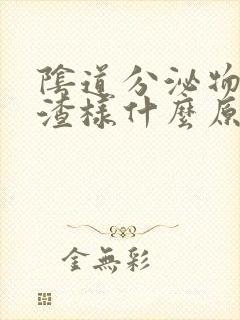 陰道分泌物
渣樣什麼原
金無彩